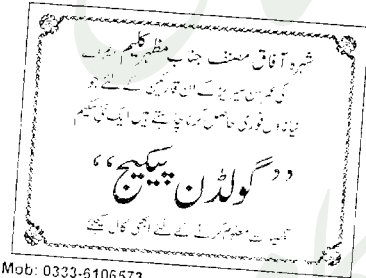 شہرہ آفاق مصنف جناب مظہر کلیم ایم اے
کی عمران سیریز کے ان قارئین کے لئے جو
نیا ناول فوری حاصل کرنا چاہتے ہیں ایک نئی سکیم
’’گولڈن پیکیج‘‘
تفصیلات معلوم کرنے کے لئے ابھی کال کیجئے
Mob: 0333-6106573